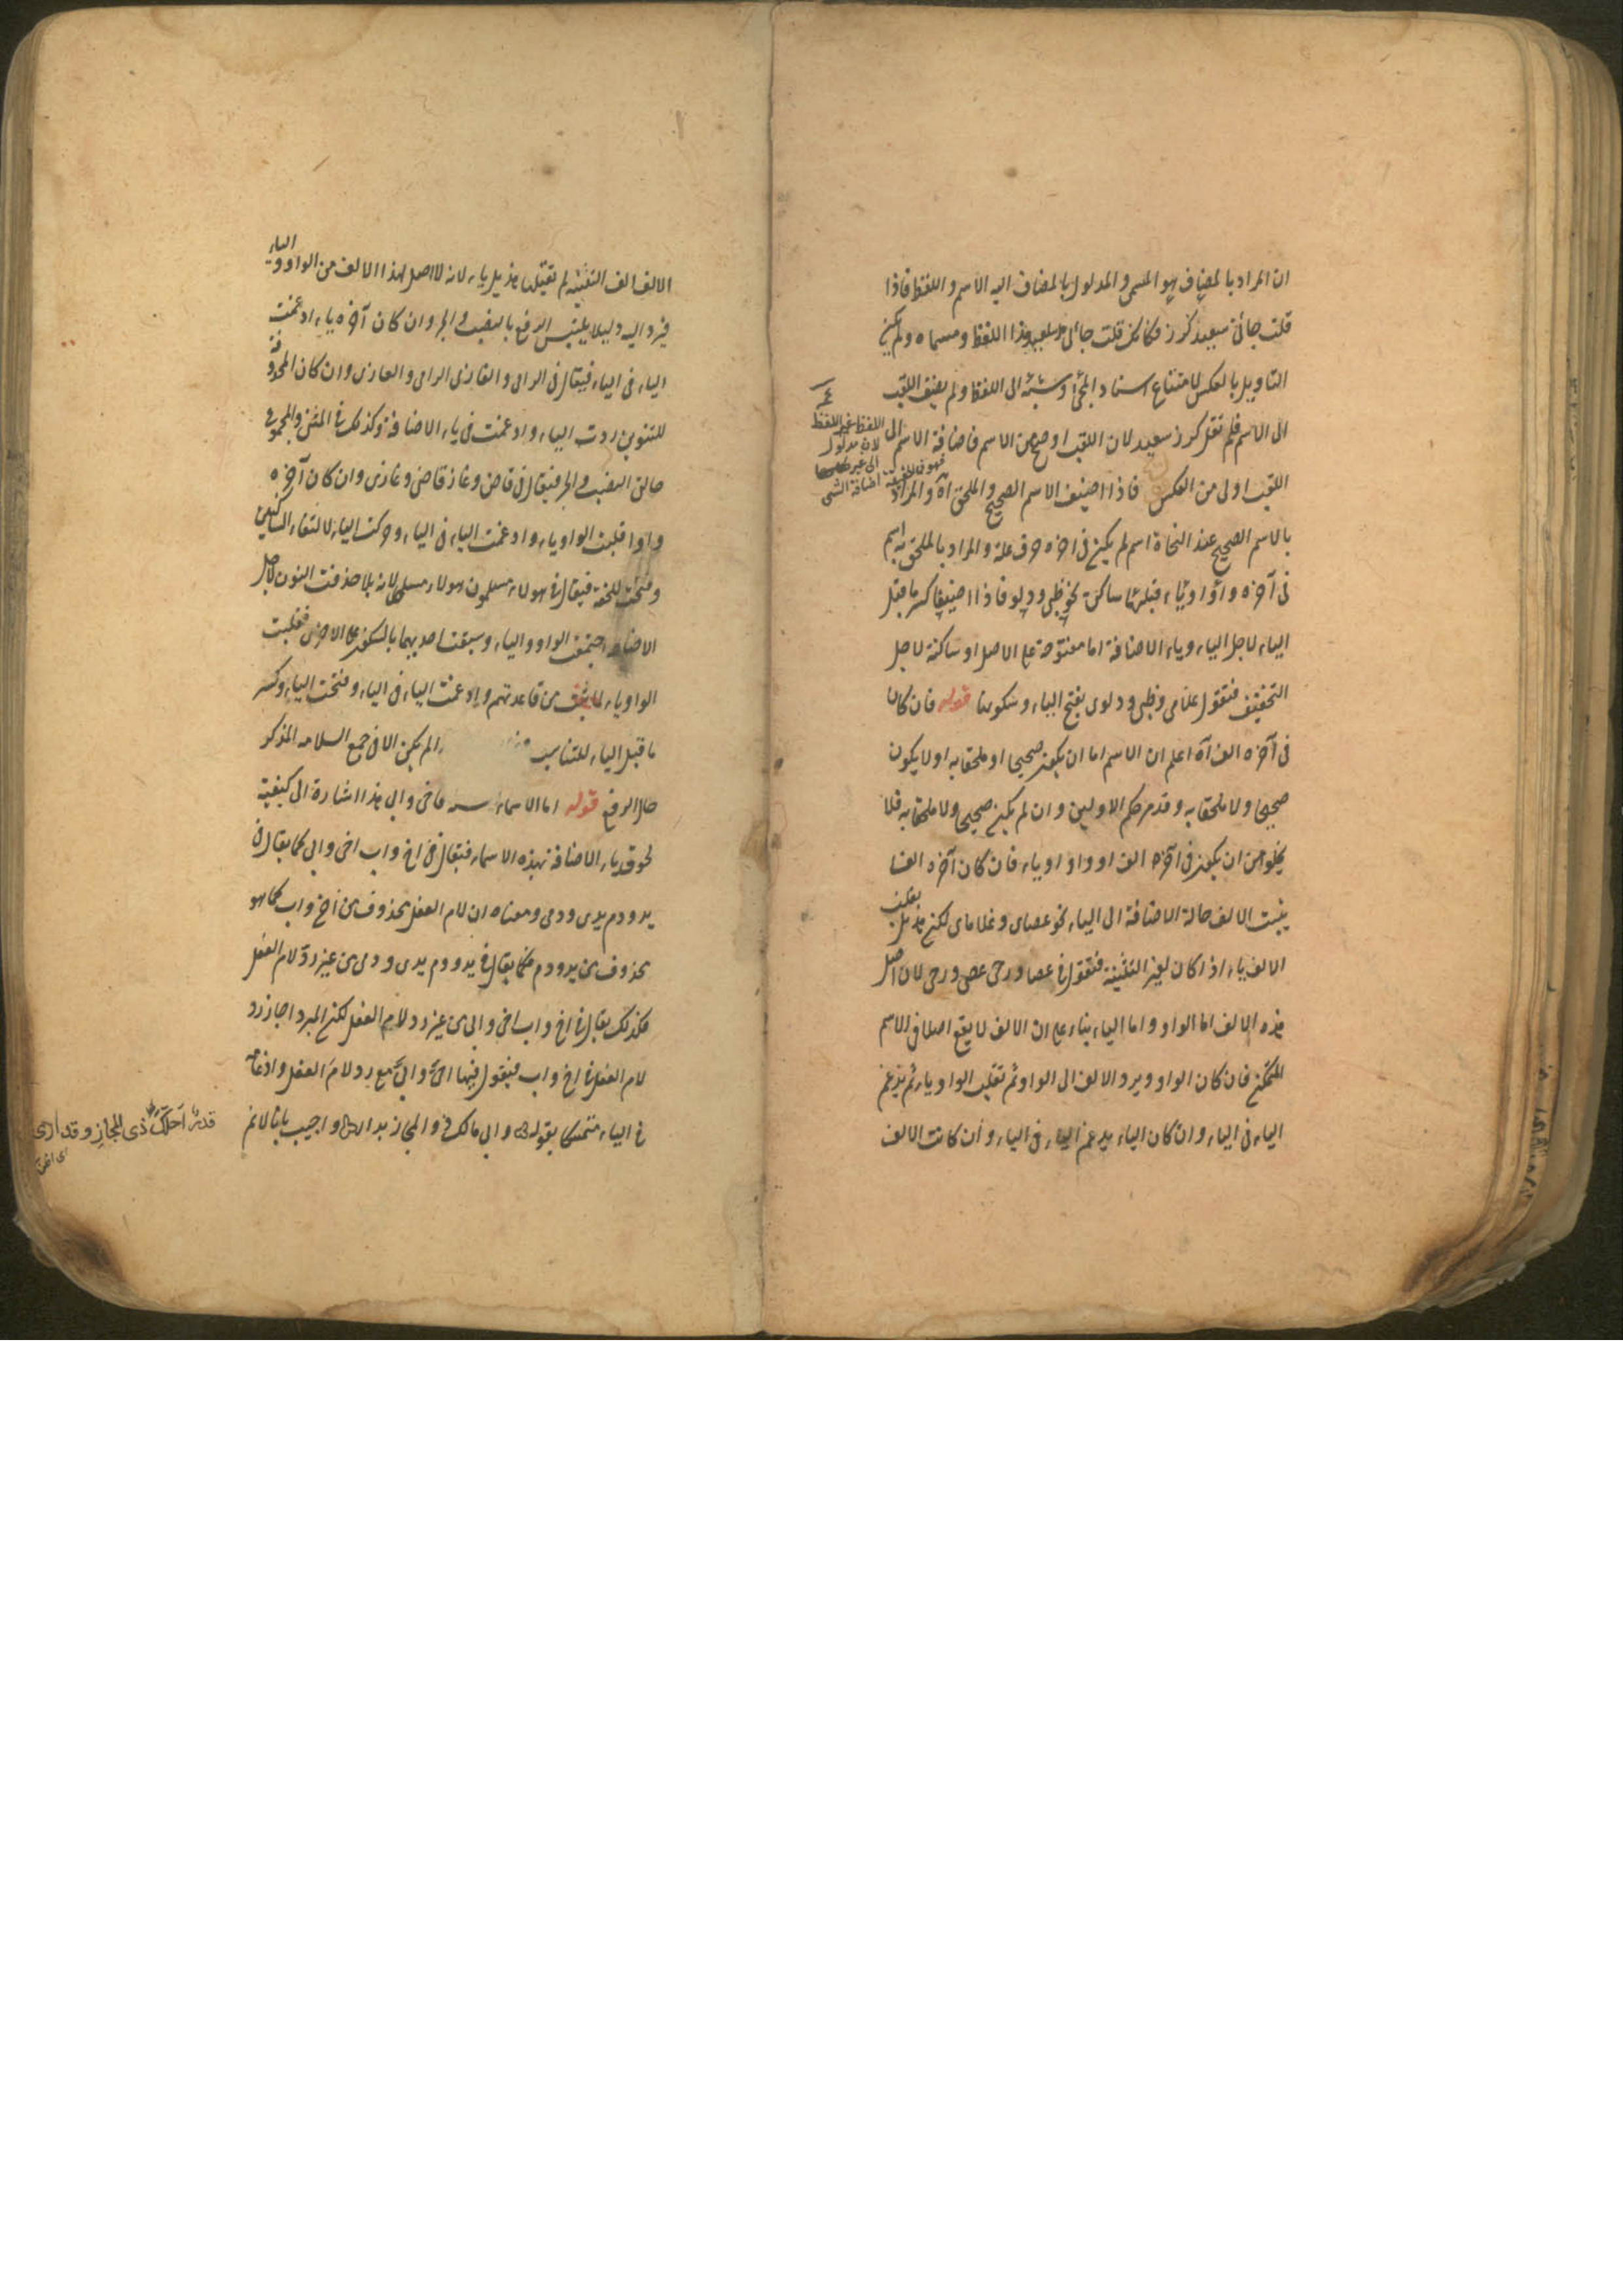 ان المراد بالمضاف هو المسمى والمدلول بالمضاف اليه الاسم واللفظ فاذا
قلت جائنى سعيد كرز فكانك قلت جائنى هذا اللفظ ومسماه ولم يكن
التاويل بالعكس لامتناع اسناد المجئ الى اللفظ ولم يضف اللقب
الى الاسم فلم تقل كرز سعيد لان اللقب اوضح من الاسم فاضافة الاسم الى
اللقب اولى من العكس فاذا اضيف الاسم الصحيح والملحق اه والمراد
اللفظ غير اللفظ
لان مدلول
اضافة الشى
بالاسم الصحيح عند النحاة اسم لم يكن فى اخره حرف علة والمراد بالملحق به اسم
فى آخره واو او ياء قبلها ساكن نحو ظبى ودلو فاذا اضيفا كسر ما قبل
الياء لاجل الياء وياء الاضافة اما مفتوحة على الاصل او ساكنة لاجل
التخفيف فتقول غلامى وظبى ودلوى بفتح الياء وسكونها قوله فان كان
فى آخره الف آه اعلم ان الاسم اما ان يكون صحيحا او ملحقا به او لا يكون
صحيحا ولا ملحقا به وقد مر حكم الاولين وان لم يكن صحيحا ولا ملحقا به فلا
يخلو من ان يكون فى آخره الف او واو او ياء فان كان آخره الفا
يثبت الالف حالة الاضافة الى الياء نحو عصاى وغلاماى لكن هذيل يقلب
الالف ياء اذا كان لغير التثنية فتقول فى عصا ورحى عصى ورحى لان اصل
هذه الالف اما الواو واما الياء بناء على ان الالف لا يقع اصلا فى الاسم
المتمكن فان كان الواو ويرد الالف الى الواو ثم تقلب الواو ياء ثم يدغم
الياء فى الياء وان كان الياء يدغم الياء فى الياء وان كانت الالف
الالف الف التثنية لم تقلبها هذيل ياء لانه لا اصل لهذا الالف من الواو والياء
فيرد اليه وليلا يلتبس الرفع بالنصب والجر وان كان آخره ياء ادغمت
الياء فى الياء فيقال فى الرامى والغازى الرامى والغازى وان كان المحذوفة
للتنوين ردت الياء وادغمت فى ياء الاضافة وكذلك فى المثنى والمجموع
حالتى النصب والجر فيقال فى قاض وغاز قاضى وغازى وان كان آخره
واوا قلبت الواو ياء وادغمت الياء فى الياء وحركت الياء لالتقاء الساكنين
وفتحت للخفة فيقال فى هولاء مسلمون هولاء مسلمى لانه لما حذفت النون لاجل
الاضافة اجتمعت الواو والياء وسبقت احديهما بالسكون على الاخرى فقلبت
الواو ياء من قاعدتهم وادغمت الياء فى الياء وفتحت الياء وكسر
ما قبل الياء للتناسب لم يكن الا فى جمع السلامه المذكر
حال الرفع قوله اما الاسماء فاخى وابى هذا اشارة الى كيفية
لحوق ياء الاضافة بهذه الاسماء فيقال فى اخ واب اخى وابى كما يقال فى
يد ودم يدى ودمى ومعناه ان لام الفعل محذوف من اخ واب كما هو
محذوف من يد ودم فكما يقال فى يد ودم يدى ودمى من غير رد لام الفعل
فكذلك يقال فى اخ واب اخى وابى من غير رد لام الفعل لكن المبرد اجاز رد
لام الفعل فى اخ واب فيقول فيهما اخى وابى مع رد لام الفعل وادغامه
فى الياء متمسكا بقوله وابى مالك ذو المجاز بدار واجيب بانه لانم
قدر احلك ذى المجاز وقد ارى